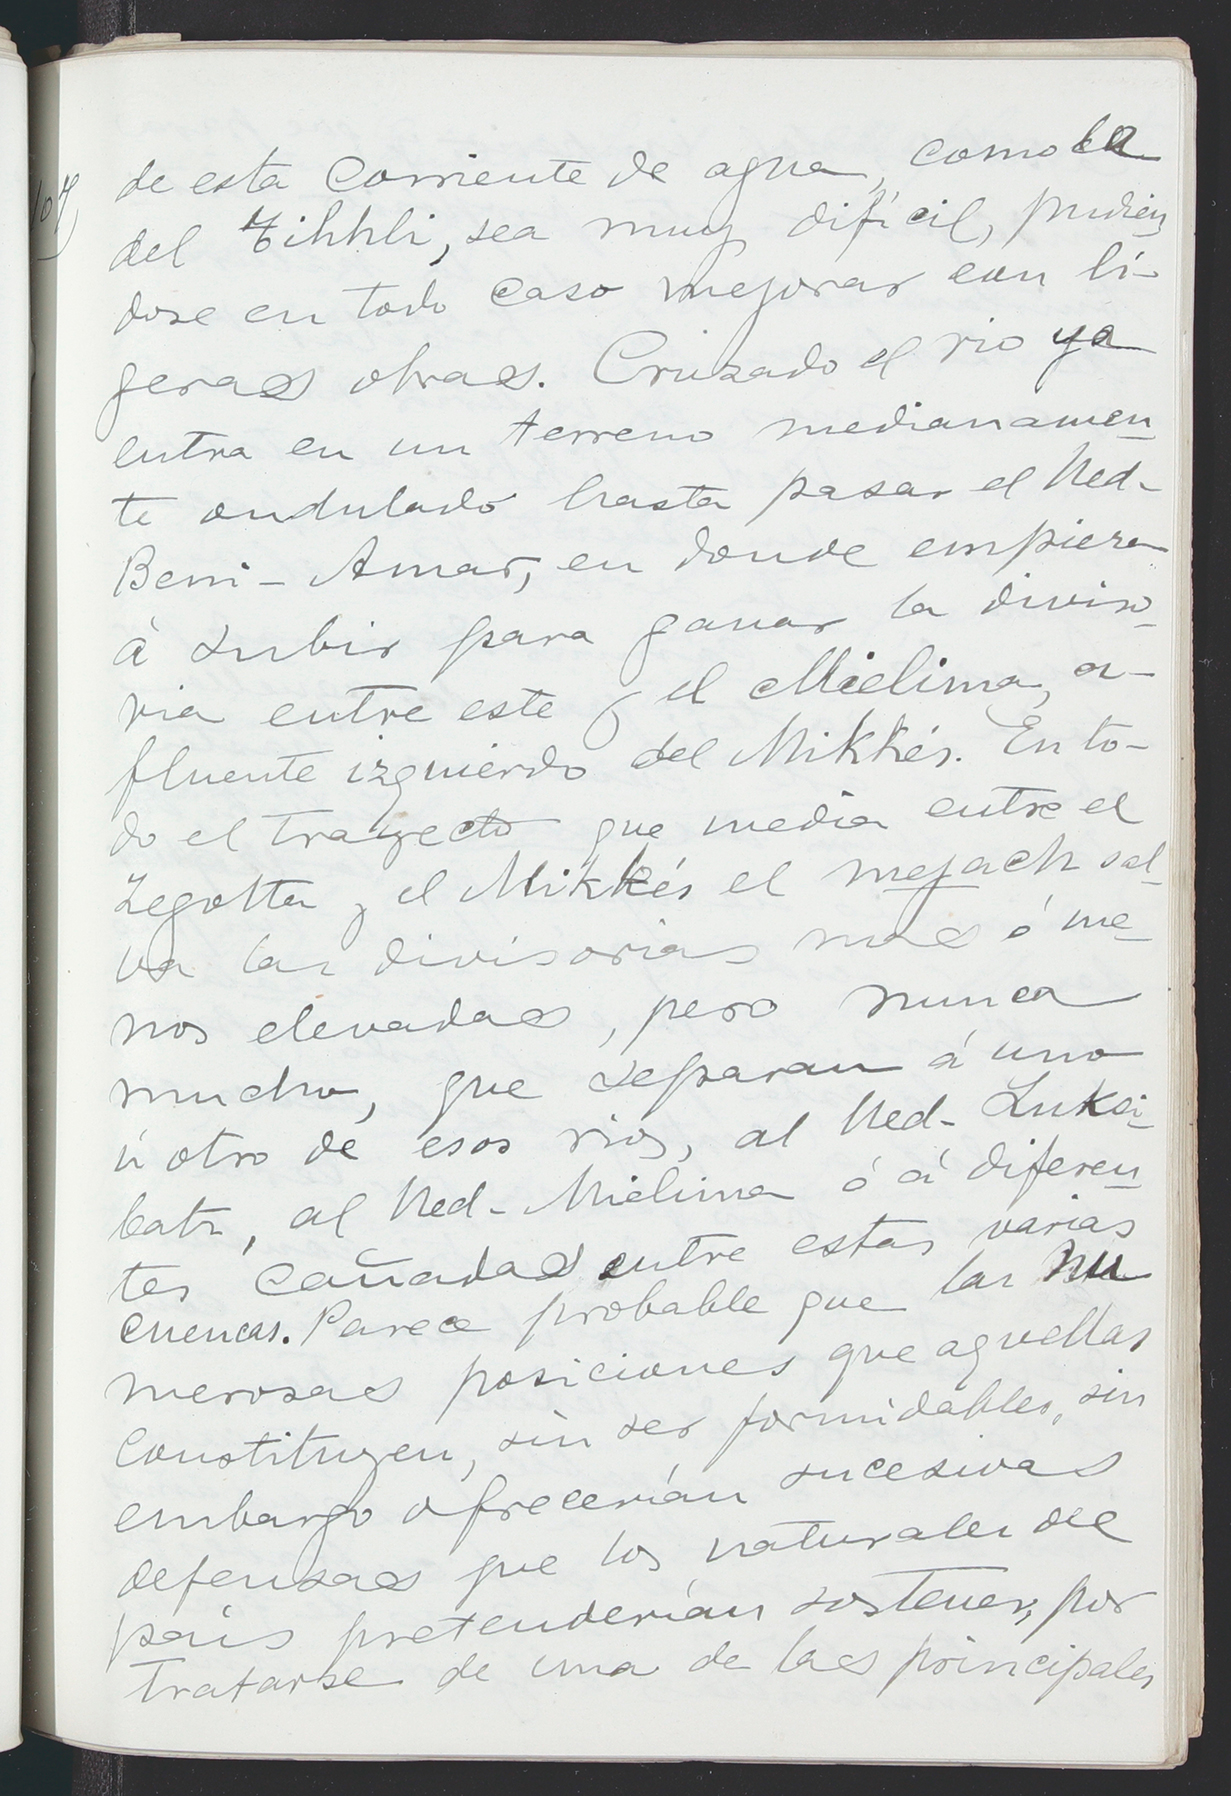 107
de esta corriente de agua, como la
del Tihhli, sea muy difícil, pudién
dose en todo caso mejorar con li-
geras obras. Cruzado el rio ya
entra en un terreno medianamen
te ondulado hasta pasar el Ued-
Beni-Amar, en donde empieza
á subir para ganar la diviso-
ria entre este y el Mielima, a-
fluente izquierdo del Mikkés. En to-
do el trayecto que media entre el
Zegotta y el Mikkés el mejach sal-
va las divisorias mas ó me-
nos elevadas, pero nunca
mucho, que separan á uno
ú otro de esos rios, al Ued-Luksi-
bath, al Ued-Mielima ó á diferen
tes cañadas entre estas varias
cuencas. Parece probable que las nu
merosas posiciones que aquellas
constituyen, sin ser formidables, sin
embargo ofrecerían sucesivas
defensas que los naturales del
país pretenderían sostener, por
tratarse de una de las principales